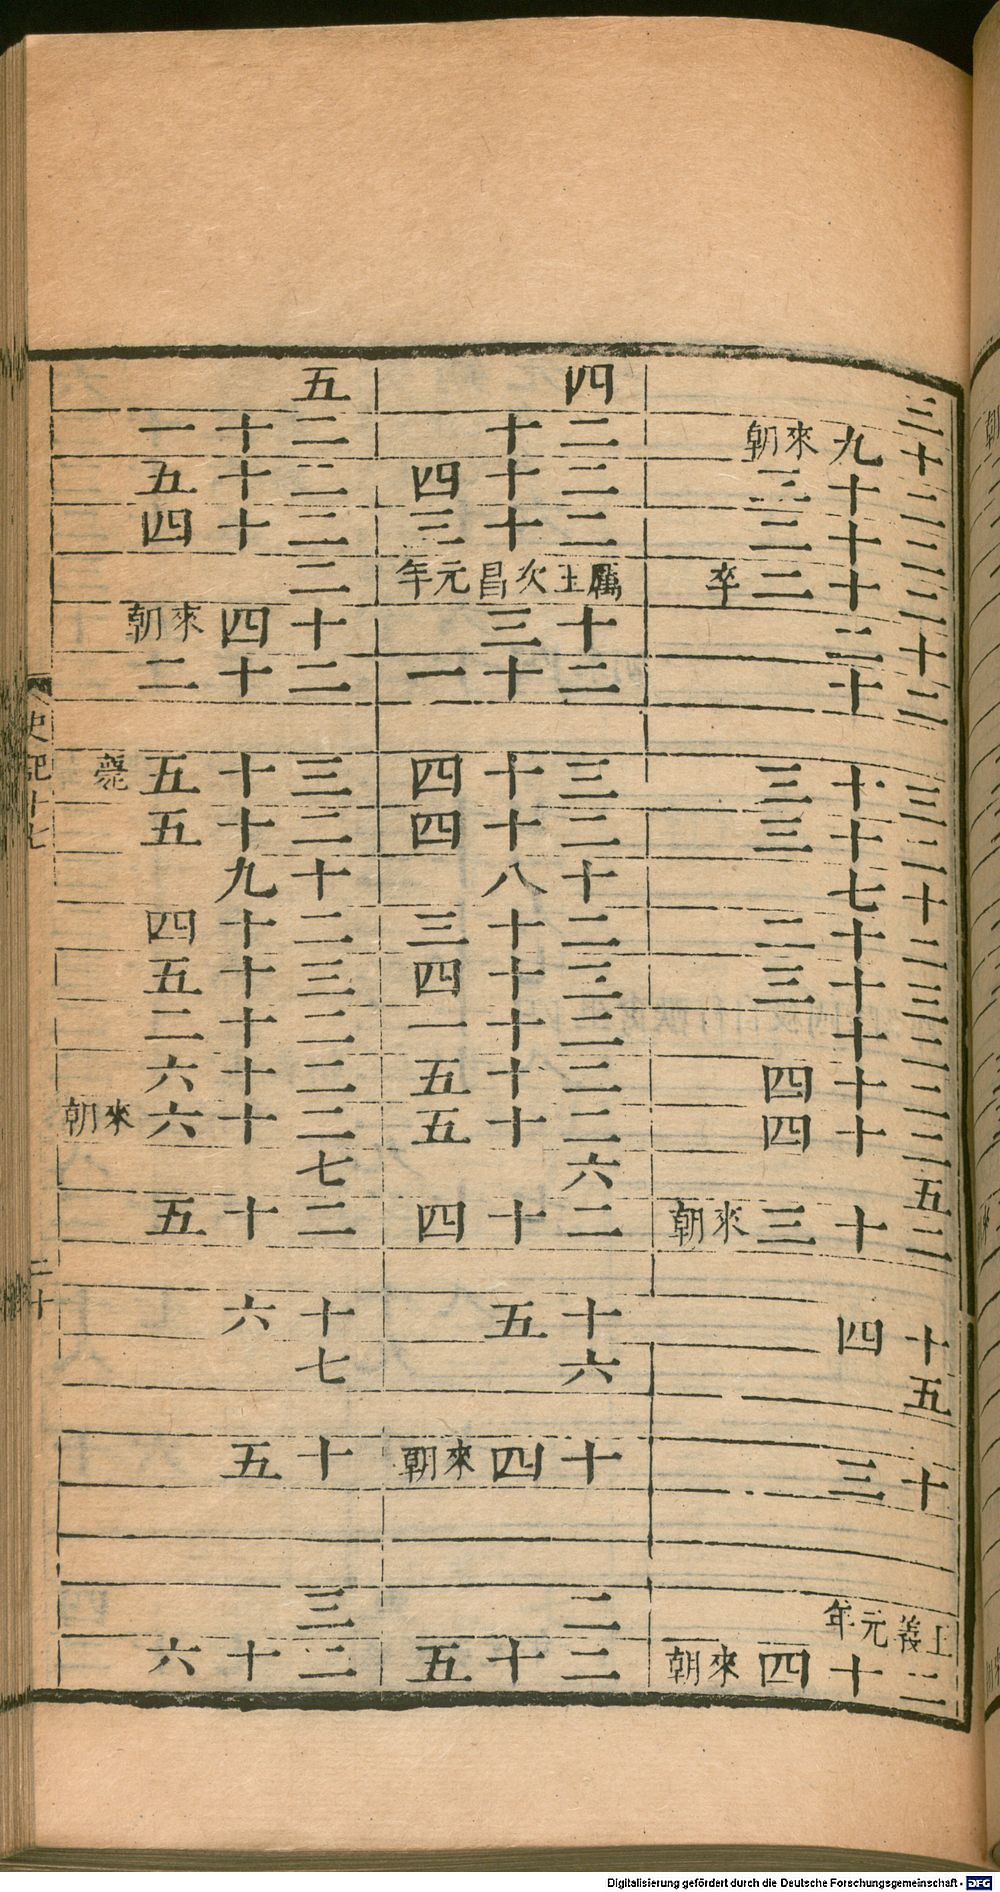 三
十九來朝
二十三
二十二
二十二卒
十二
二十
三十三
二十三
十七
二十二
三十三
二十
二十四
二十四
五
二十三來朝
十四
十五
十三
王義元年
二十四來朝
四
二十
二十四
二十三
厲王次昌元年
十三
二十一
三十四
二十四
十八
二十三
三十四
二十一
二十五
二十五
六
二十四
十五
十六
十四來朝
二
二十五
五
二十一
二十五
二十四
二
十四來朝
二十二
三十五薨
二十五
十九
二十四
三十五
二十二
二十六
二十六來朝
七
二十五
十六
十七
十五
三
二十六
史記十七
二十
Digitalisierung gefördert durch die Deutsche Forschungsgemeinschaft - DFG